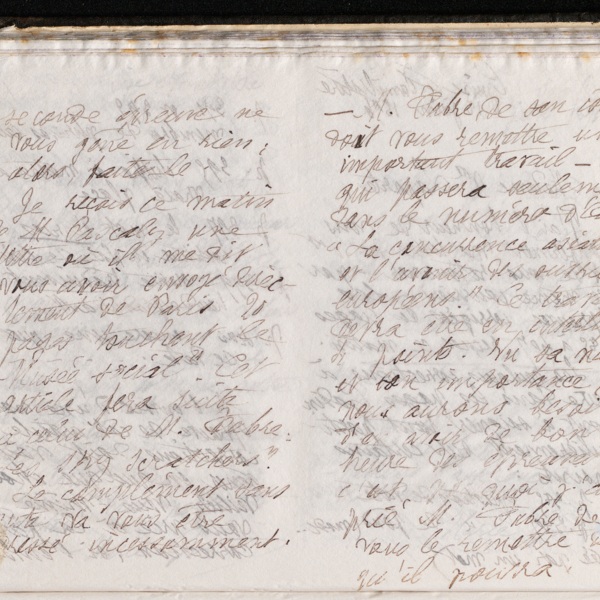 seconde épreuve ne
vous gêne en rien,
alors faites le
Je reçois ce matin
de M. Pascaly une
lettre où il me dit
vous avoir envoyé direc-
tement de Paris 20
pages touchant le
"Musée social". Cet
article fera suite
à celui de M. Fabre.
"Les Sky Scratchers".
Le complément sans
doute va vous être
incessamment.
— M. Fabre de son cô
doit vous remettre un
important travail —
qui passera seuleme
dans le numéro d'
"La concurrence asia
et l'avenir des ouvrie
européens". Ce trava
devra être en
points. Vu sa
et son importance
nous aurons besoi
d'avoir de bonne
heure les épreuves
c'est
prié M. Fabre de
vous le remettre
qu'il pourra